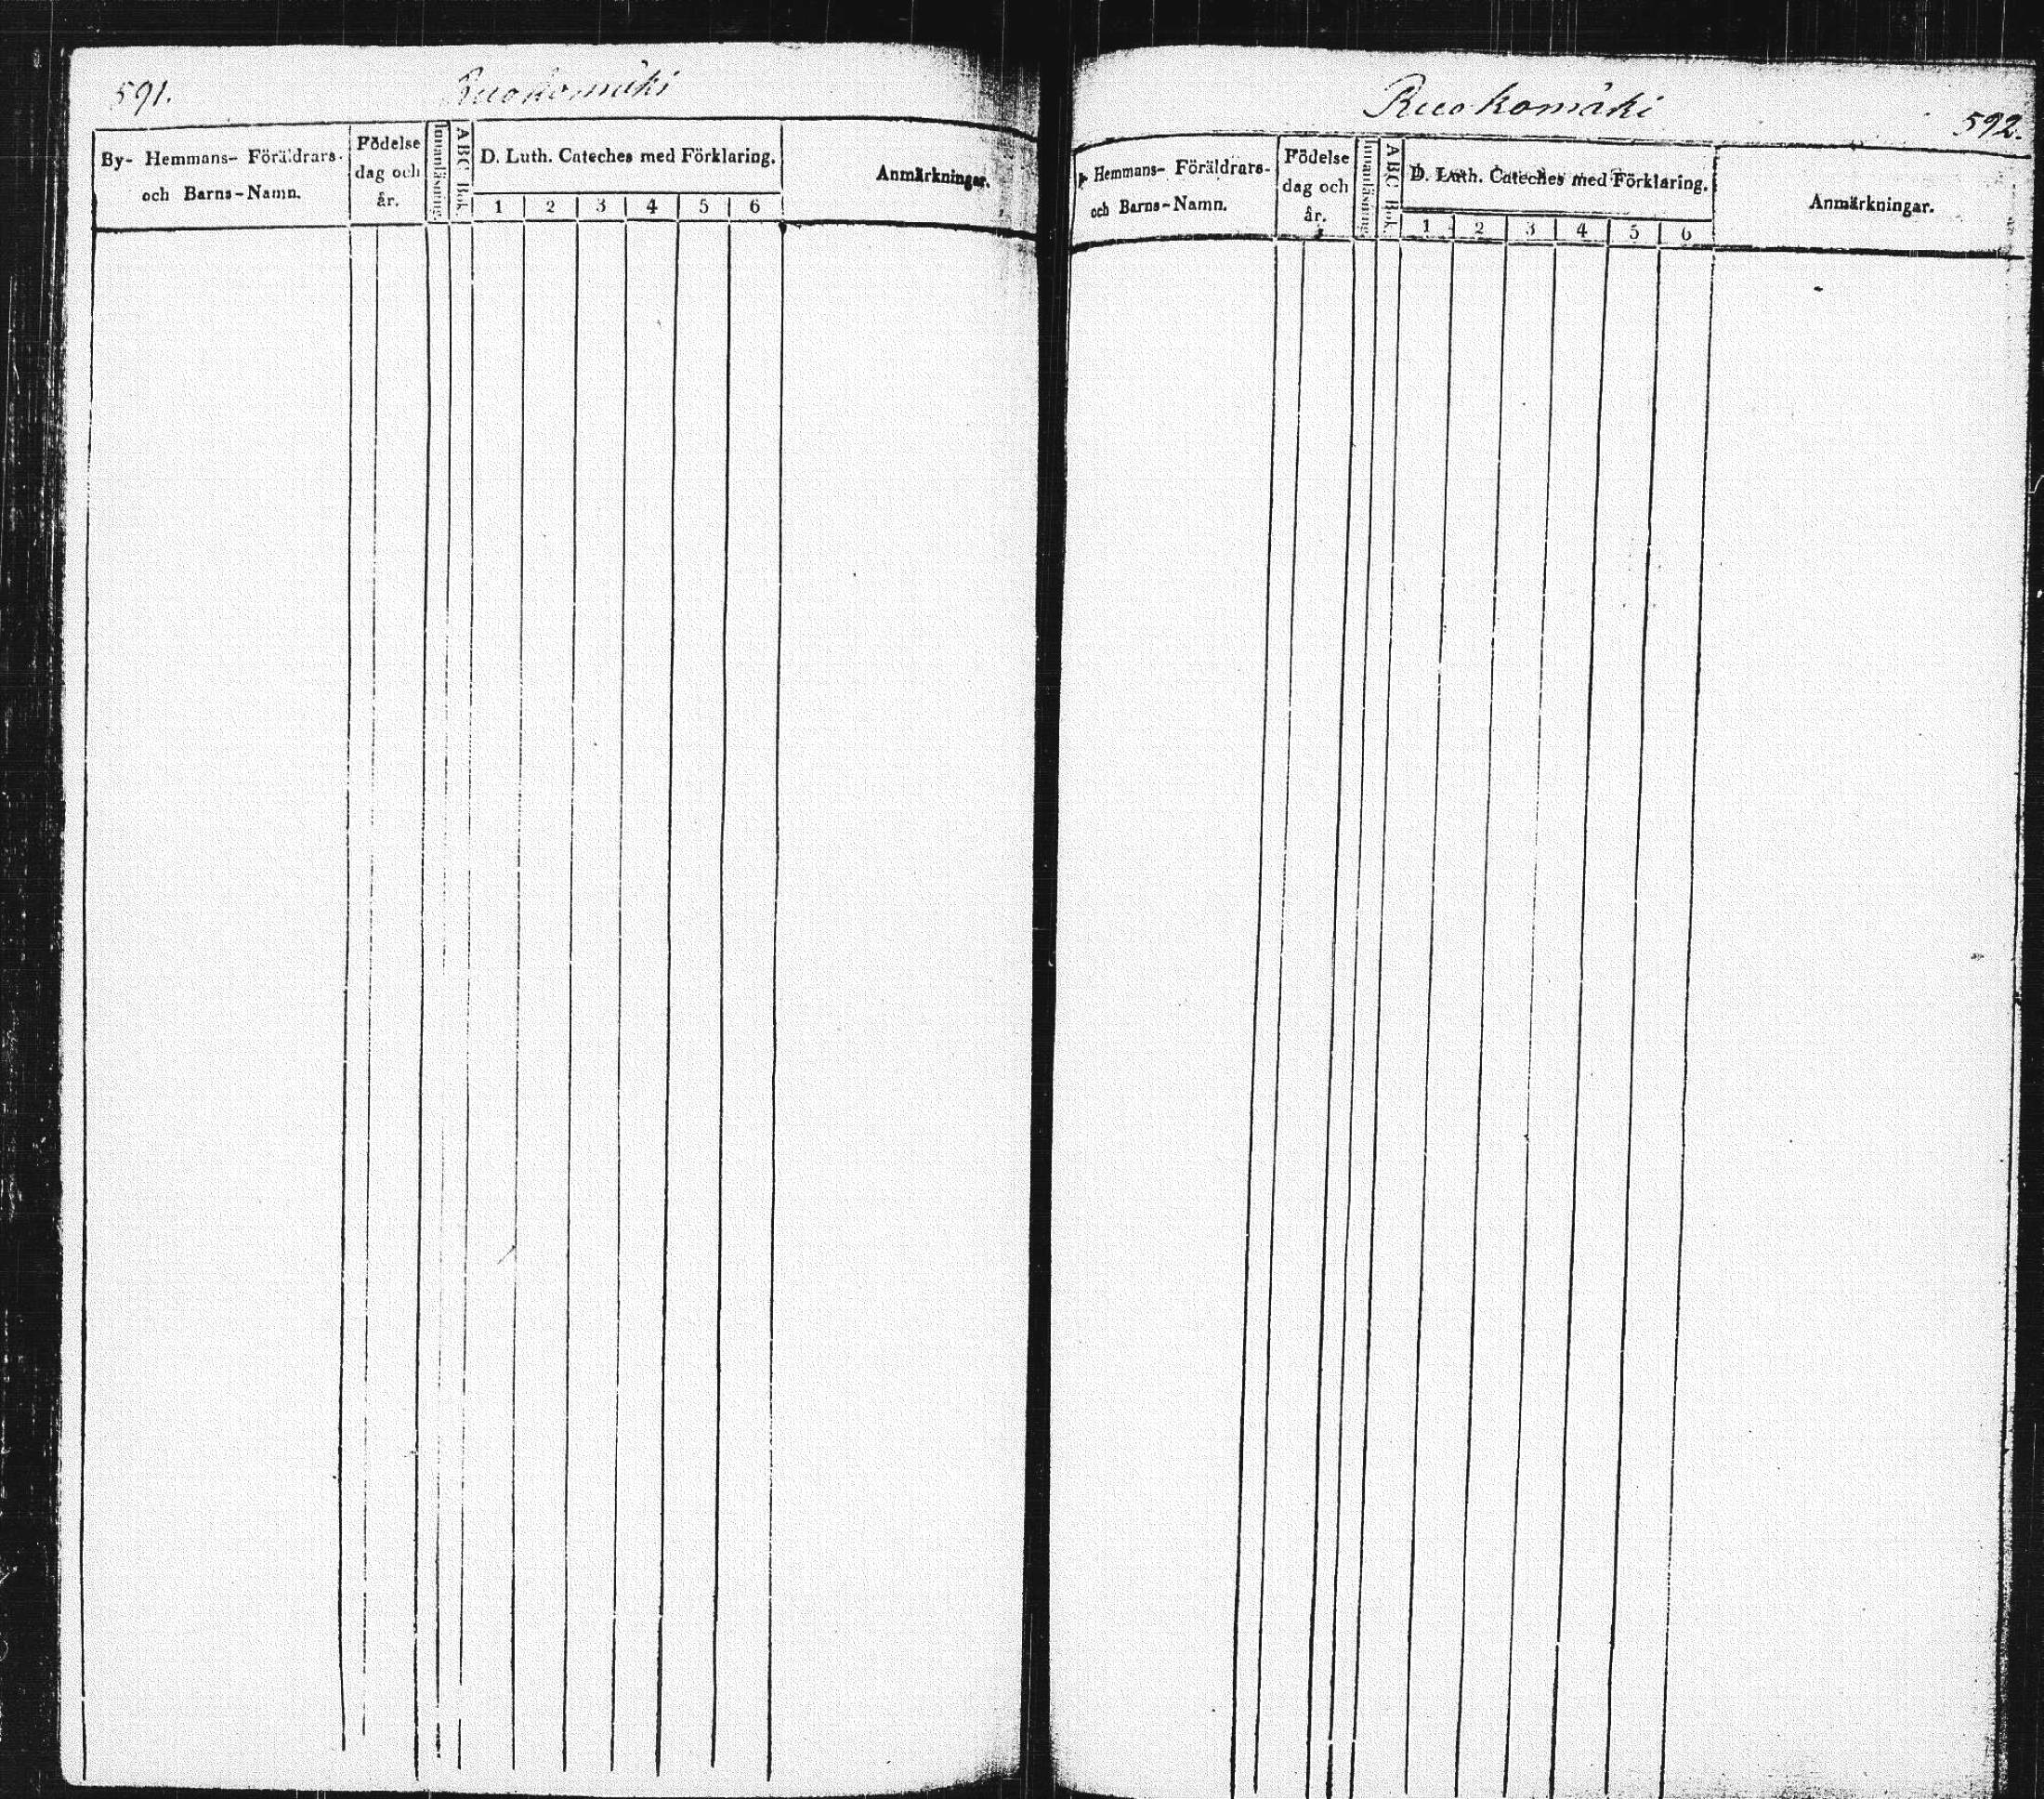 591.
Ruokomäki
By- Hemmans- Föräldrars-
och Barns-Namn.
Födelse
dag och
år.
Innanläsning.
ABC Bok.
D. Luth. Cateches med Förklaring.
1 2 3 4 5 6
Anmärkningar.
Ruokomäki
592.
Hemmans- Föräldrars-
och Barns-Namn.
Födelse
dag och
år.
Innanläsning.
ABC Bok.
D. Luth. Cateches med Förklaring.
1 2 3 4 5 6
Anmärkningar.